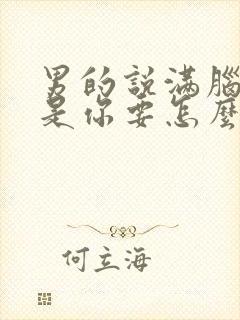 男的說滿腦
是你要怎麼
何立海